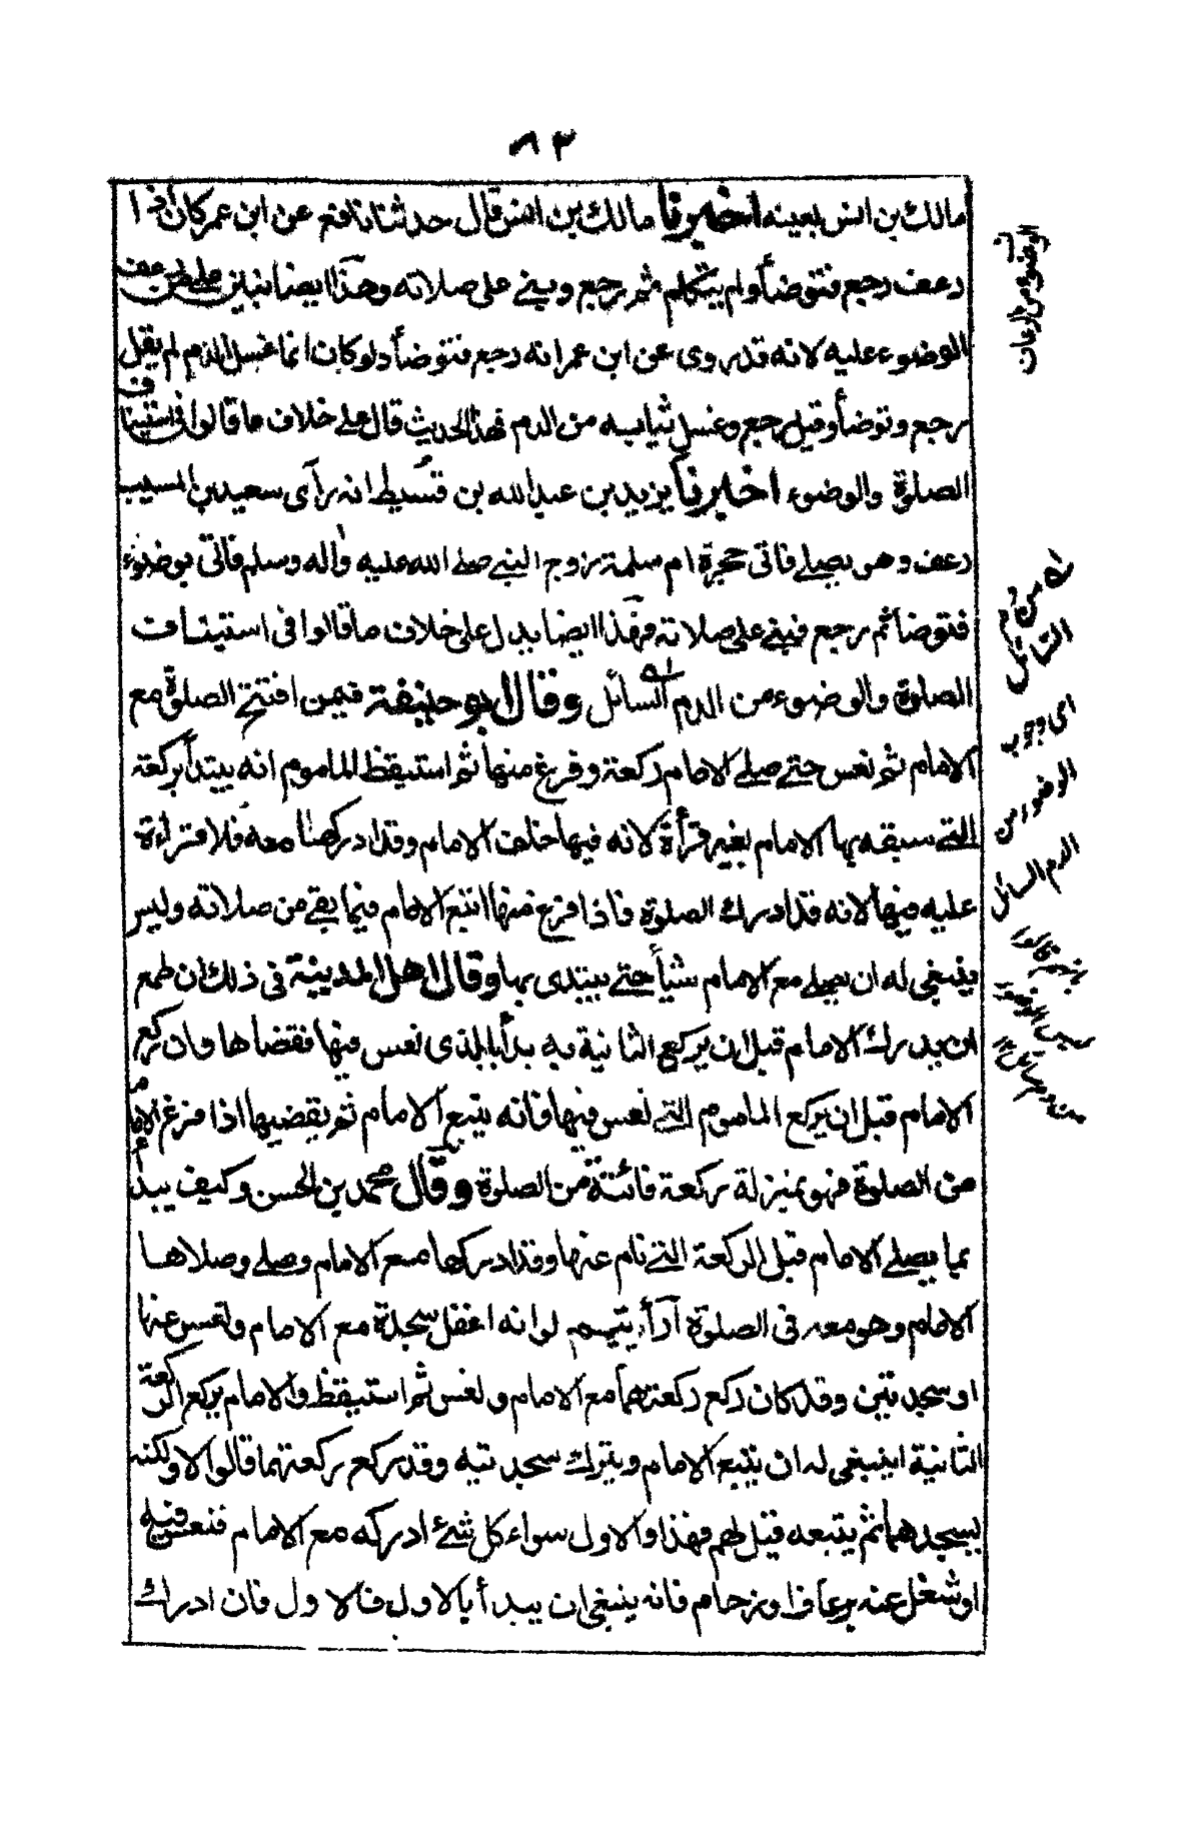 ٨٣
مالك بن انس بعينه اخبرنا مالك بن انس قال حدثنا نافع عن ابن عمر كان اذا
رعف رجع فتوضأ ولم يتكلم ثم رجع وبنى على صلاته وهذا ايضا يبين على من رعف
الوضوء عليه لانه قد روى عن ابن عمر انه رجع فتوضأ ولو كان انما غسل الدم لم يقل
رجع وتوضأ وقيل رجع وغسل ثيابه من الدم فهذا الحديث قال على خلاف ما قالوا فى استيناف
الصلوة والوضوء اخبرنا يزيد بن عبد الله بن قسيط انه رآى سعيد بن المسيب
رعف وهو يصلے فاتى حجرة ام سلمة زوج النبے صلے الله عليه واله وسلم فاتى بوضوء
فتوضأ ثم رجع فبنے على صلاته فهذا ايضا يدل على خلاف ما قالوا فى استيناف
الصلوة والوضوء من الدم السائل وقال ابو حنيفة فيمن افتتح الصلوة مع
الامام ثم نعس حتے صلے الامام ركعة وفرغ منها ثم استيقظ الماموم انه يبتدأ بركعة
التے سبقه بها الامام بغير قرأة لانه فيها خلف الامام وقد ادركها معه فلا قراءة
عليه فيها لانه قد ادرك الصلوة فاذا فرغ منها اتبع الامام فيما بقے من صلاته وليس
ينبغى له ان يصلے مع الامام شيأ حتے يبتدى بها وقال اهل المدينة فى ذلك ان طمع
ان يدرك الامام قبل ان يركع الثانية به بدأ بالذى نعس فيها فقضاها وان ركع
الامام قبل ان يركع الماموم التے نعس فيها فانه يتبع الامام ثم يقضيها اذا فرغ الامام
من الصلوة فهو بمنزلة ركعة فائتة من الصلوة وقال محمد بن الحسن وكيف يبدأ
بما يصلے الامام قبل الركعة التے نام عنها وقد ادركها مع الامام وصلے وصلاها
الامام وهو معه فى الصلوة أرأيتهم لو انه اغفل سجدة مع الامام ونعس عنها
او سجدتين وقد كان ركع ركعتهما مع الامام ونعس ثم استيقظ والامام يركع الركعة
الثانية اينبغى له ان يتبع الامام ويترك سجدتيه وقد ركع ركعتهما قالوا لا ولكنه
يسجدهما ثم يتبعه قيل لهم فهذا والاول سواء كل شئ ادركه مع الامام فنعس فيه
او شغل عنه برعاف او زحام فانه ينبغى ان يبدأ بالاول فالاول فان ادرك
الوضوء من الرعاف
اى من الدم
السائل
اى وجوب
الوضوء من
الدم السائل
قالوا